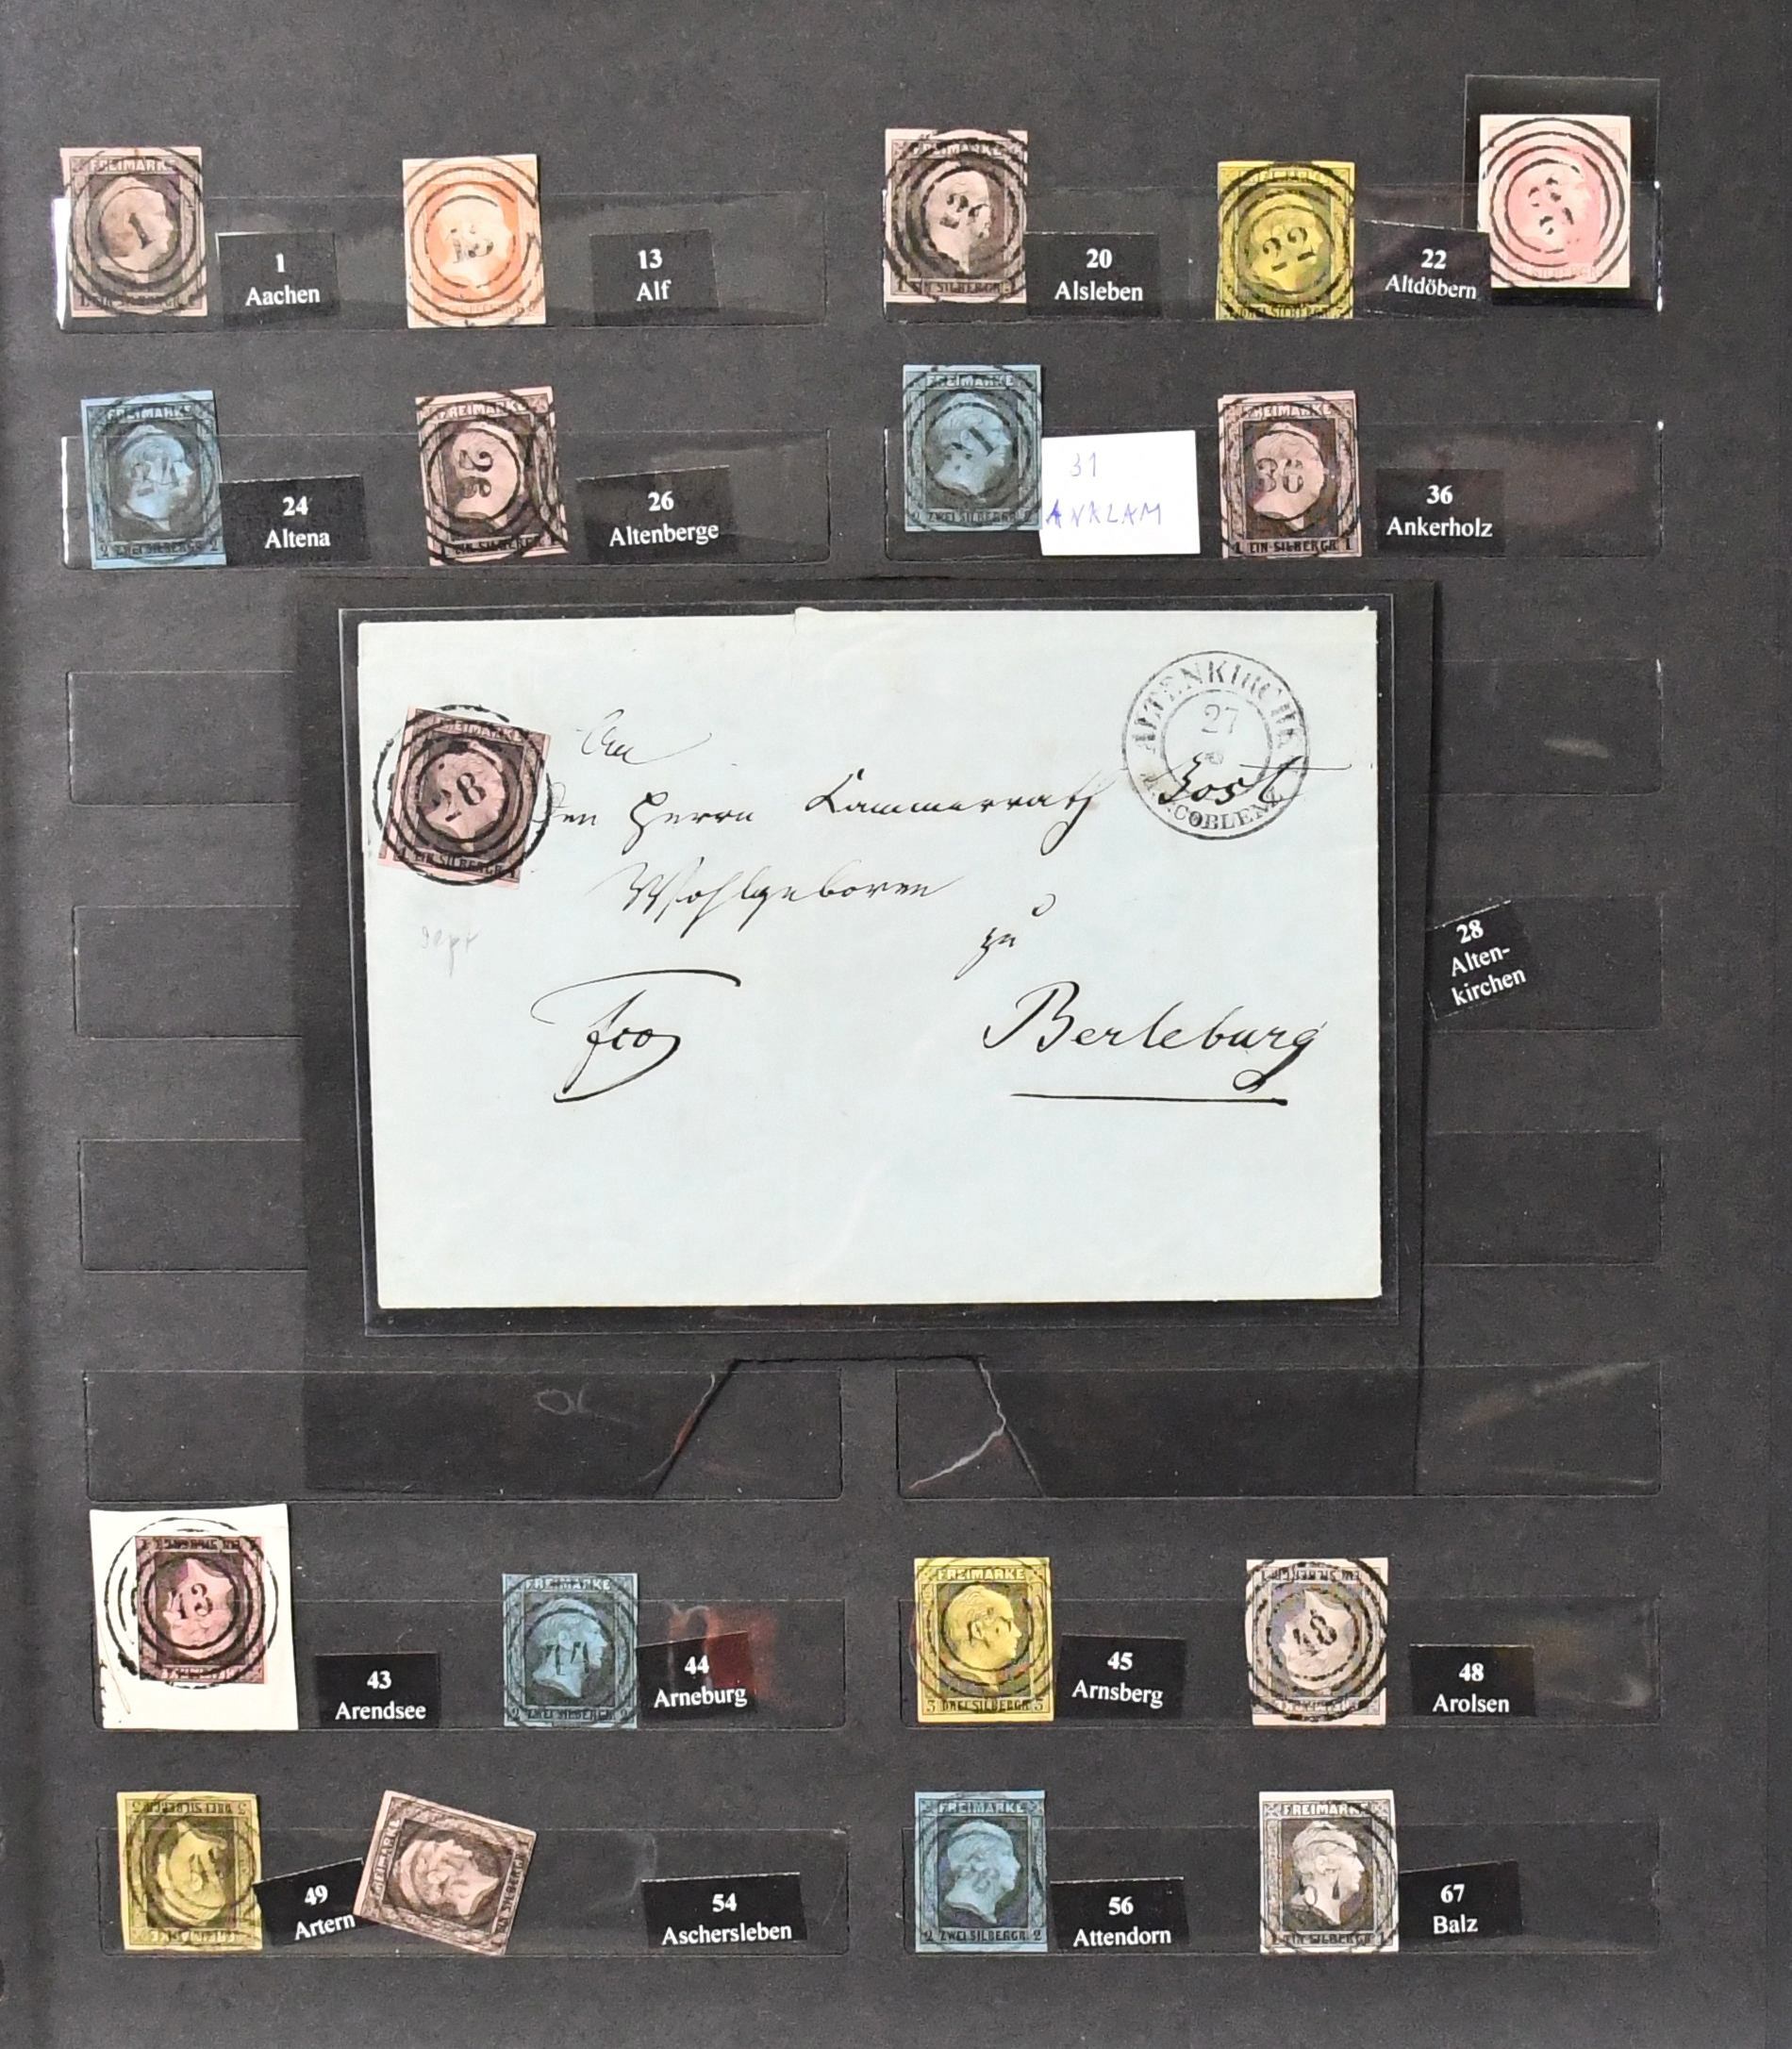 FREIMARKE
1
EIN SILBERGR.
1
Aachen
13
13
Alf
FREIMARKE
20
1 EIN SILBERGR. 1
20
Alsleben
22
DREI SILBERGR.
22
Altdöbern
FREIMARKE
24
2 ZWEI SILBERGR. 2
24
Altena
FREIMARKE
26
1 EIN SILBERGR. 1
26
Altenberge
FREIMARKE
31
2 ZWEI SILBERGR. 2
31
ANKLAM
FREIMARKE
36
1 EIN SILBERGR. 1
36
Ankerholz
FREIMARKE
28
1 EIN SILBERGR. 1
ALTENKIRCHEN
27
COBLENZ
An
den Herrn Kammerrath Jost
Wohlgeboren
zu
Fco
Berleburg
28
Alten-
kirchen
43
43
Arendsee
FREIMARKE
44
2 ZWEI SILBERGR. 2
44
Arneburg
FREIMARKE
3 DREI SILBERGR. 3
45
Arnsberg
48
48
Arolsen
3 DREI SILBERGR. 3
49
Artern
FREIMARKE
54
Aschersleben
FREIMARKE
2 ZWEI SILBERGR. 2
56
Attendorn
FREIMARKE
1 EIN SILBERGR. 1
67
Balz